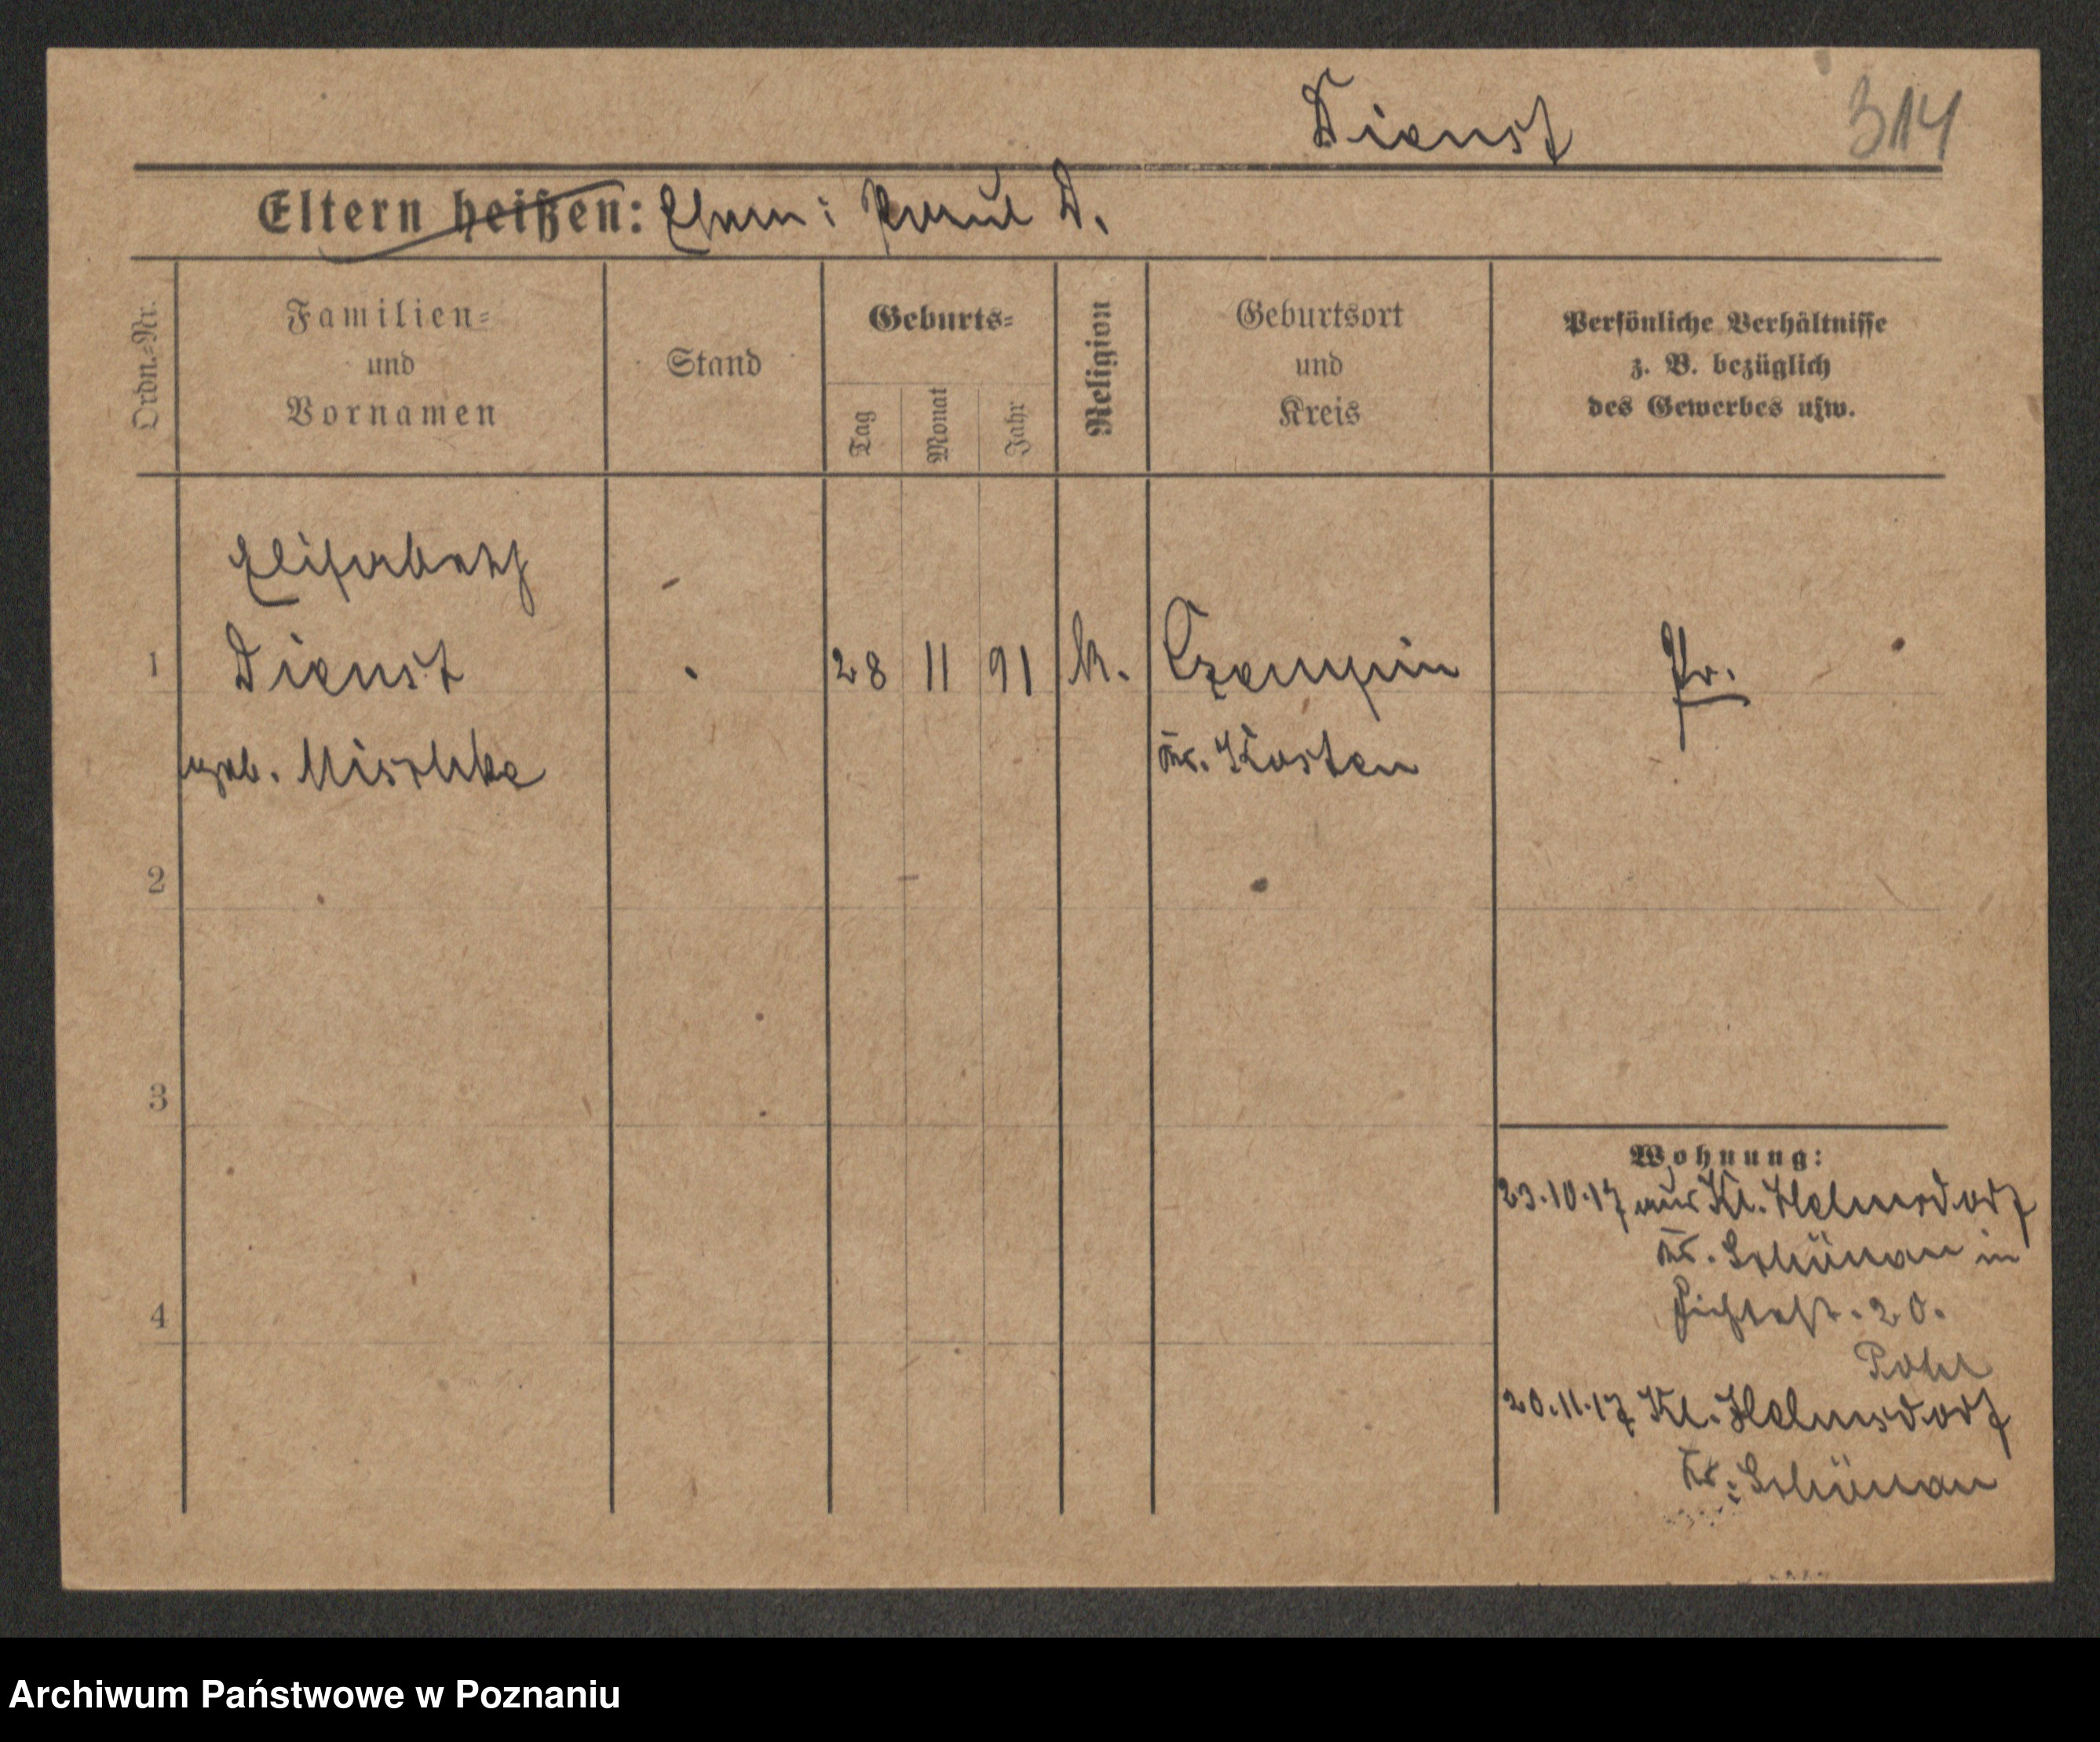 Dienst
314
Eltern heißen: Ehem: Paul D.
Ordn.=Nr.
Familien=
und
Vornamen
Stand
Geburts=
Tag
Monat
Jahr
Religion
Geburtsort
und
Kreis
Persönliche Verhältnisse
z. B. bezüglich
des Gewerbes usw.
Elisabeth
1 Dienst 28 11 91 k. Czempin Pr.
geb. Mischke Kr. Kosten
2
3
4
Wohnung:
23.10.17 aus Kl. Helmsdorf
Kr. Schönau in
Fichtestr. 20.
Pohl
20.11.17 Kl. Helmsdorf
Kr. Schönau
Archiwum Państwowe w Poznaniu